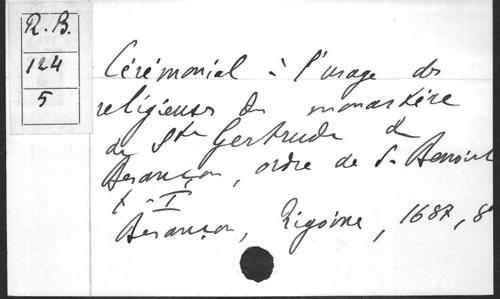 R. B.
124
5
Cérémonial à l'usage des
religieuses du monastère
de Ste Gertrude de
Besançon, ordre de St Benoist
t. I
Besançon, Rigoine, 1687, 8°